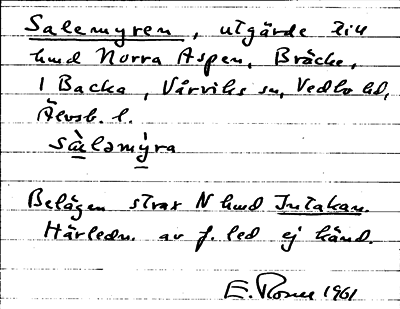 Salemyren, utgörde till
hmd Norra Aspen, Bräcke,
1 Backa, Vårviks sn, Vedbo hd,
Älvsb. l.
sàləmỳra
Belägen strax N hmd Intakan.
Härledn. av f. led ej känd.
E. Rosen 1961